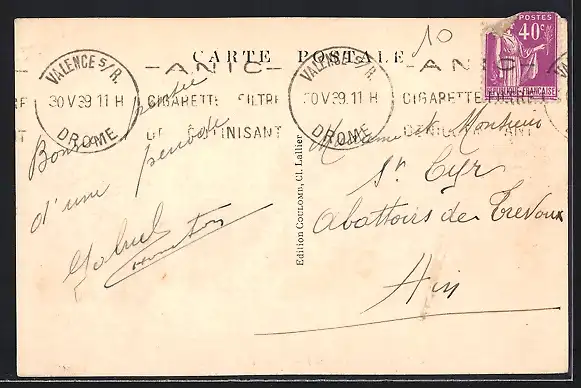 CARTE POSTALE
10
POSTES
40c
RÉPUBLIQUE FRANÇAISE
VALENCE S/R.
30 V 39. 11 H
DROME
ANIC
CIGARETTE FILTRE
VALENCE S/R.
30 V 39. 11 H
DROME
ANIC
CIGARETTE FILTRE
DÉNICOTINISANT
Bonne pensée
d'une
Gabriel
Edition COULOMB, Cl. Lallier
Madame et Monsieur
St Cyr
Abattoirs de Trevoux
Ain